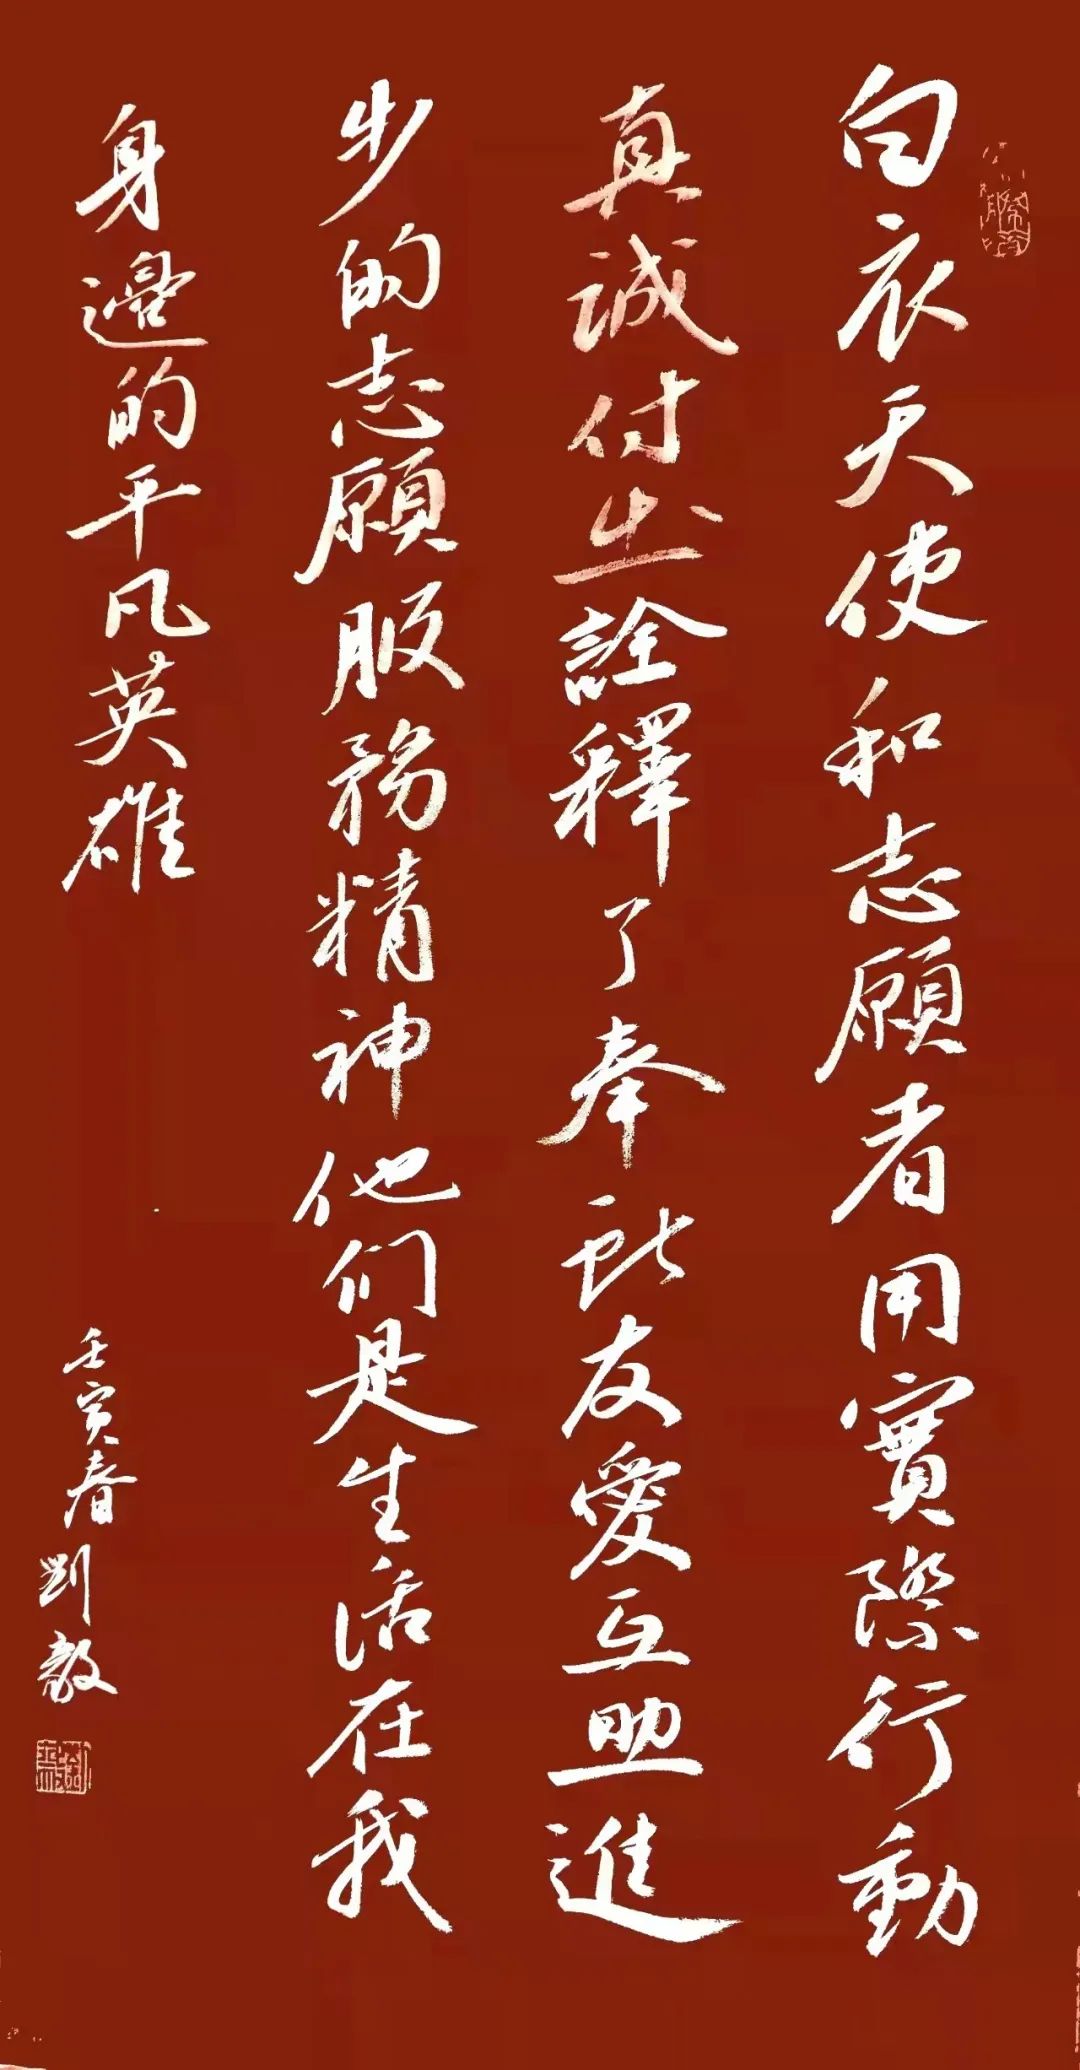 白衣天使和志願者用實際行動
真誠付出詮釋了奉献友愛互助進
步的志願服務精神他们是生活在我
身邊的平凡英雄
壬寅春劉毅